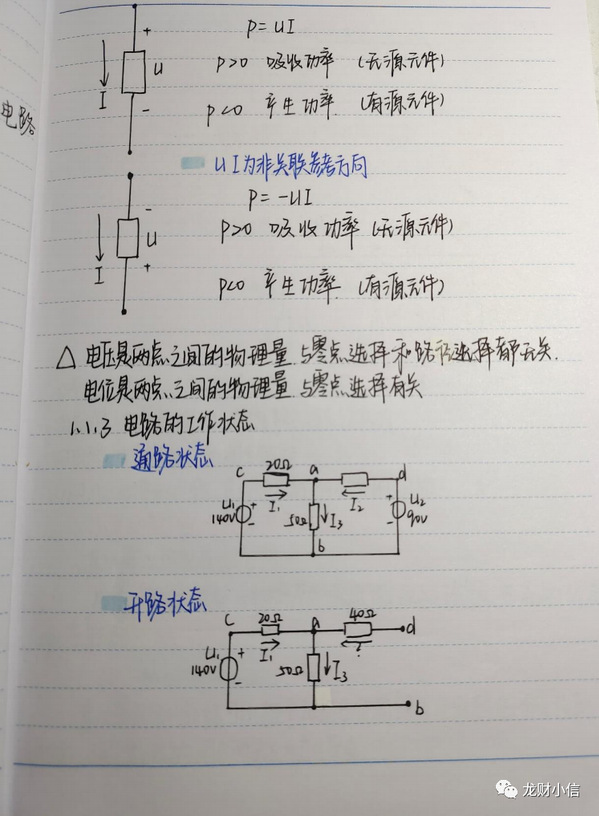 +
P=UI
I
U
P>0 吸收功率 (无源元件)
-
P<0 产生功率 (有源元件)
电路
UI为非关联参考方向
-
P=-UI
I
U
P>0 吸收功率 (无源元件)
+
P<0 产生功率 (有源元件)
△ 电压是两点之间的物理量 与零点选择和路径选择都无关.
电位是两点之间的物理量 与零点选择有关
1.1.3 电路的工作状态
通路状态
c 20Ω a d
I₁ I₂
U₁ + 140V -
50Ω I₃
+ U₂ - 90V
b
开路状态
c 20Ω a 40Ω d
I₁
U₁ + 140V -
50Ω I₃
b
龙财小信